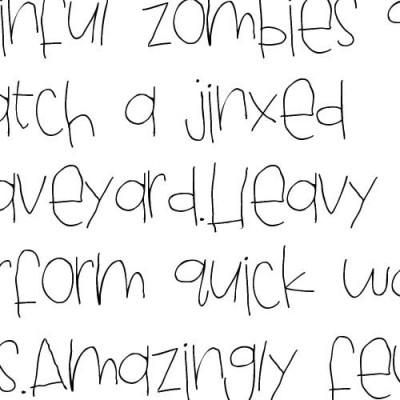 inful zombies
atch a jinxed
aveyard.Heavy
rform quick
s.Amazingly few